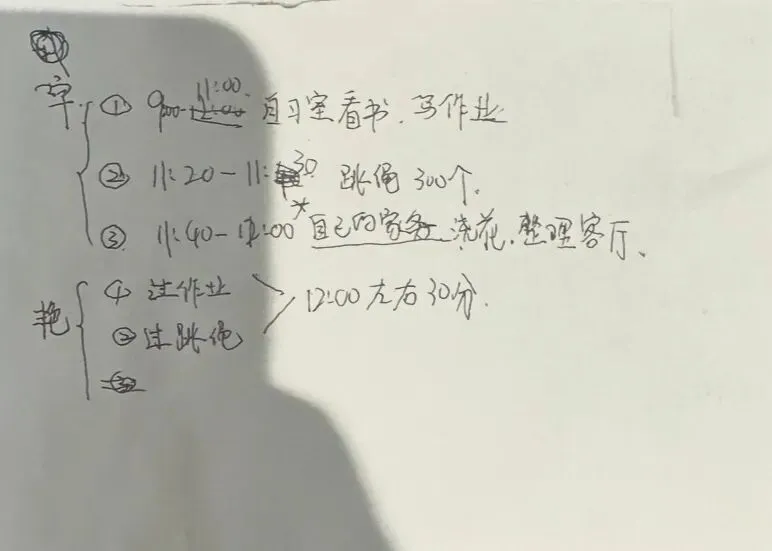 字 ① 9:00-11:00 自习室看书、写作业
② 11:20-11:30 跳绳300个.
③ 11:40-12:00 自己的家务 浇花、整理客厅、
艳 ① 过作业
12:00左右30分.
② 过跳绳